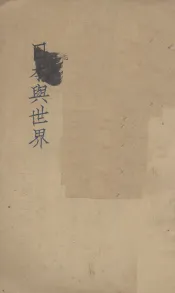 日本與世界